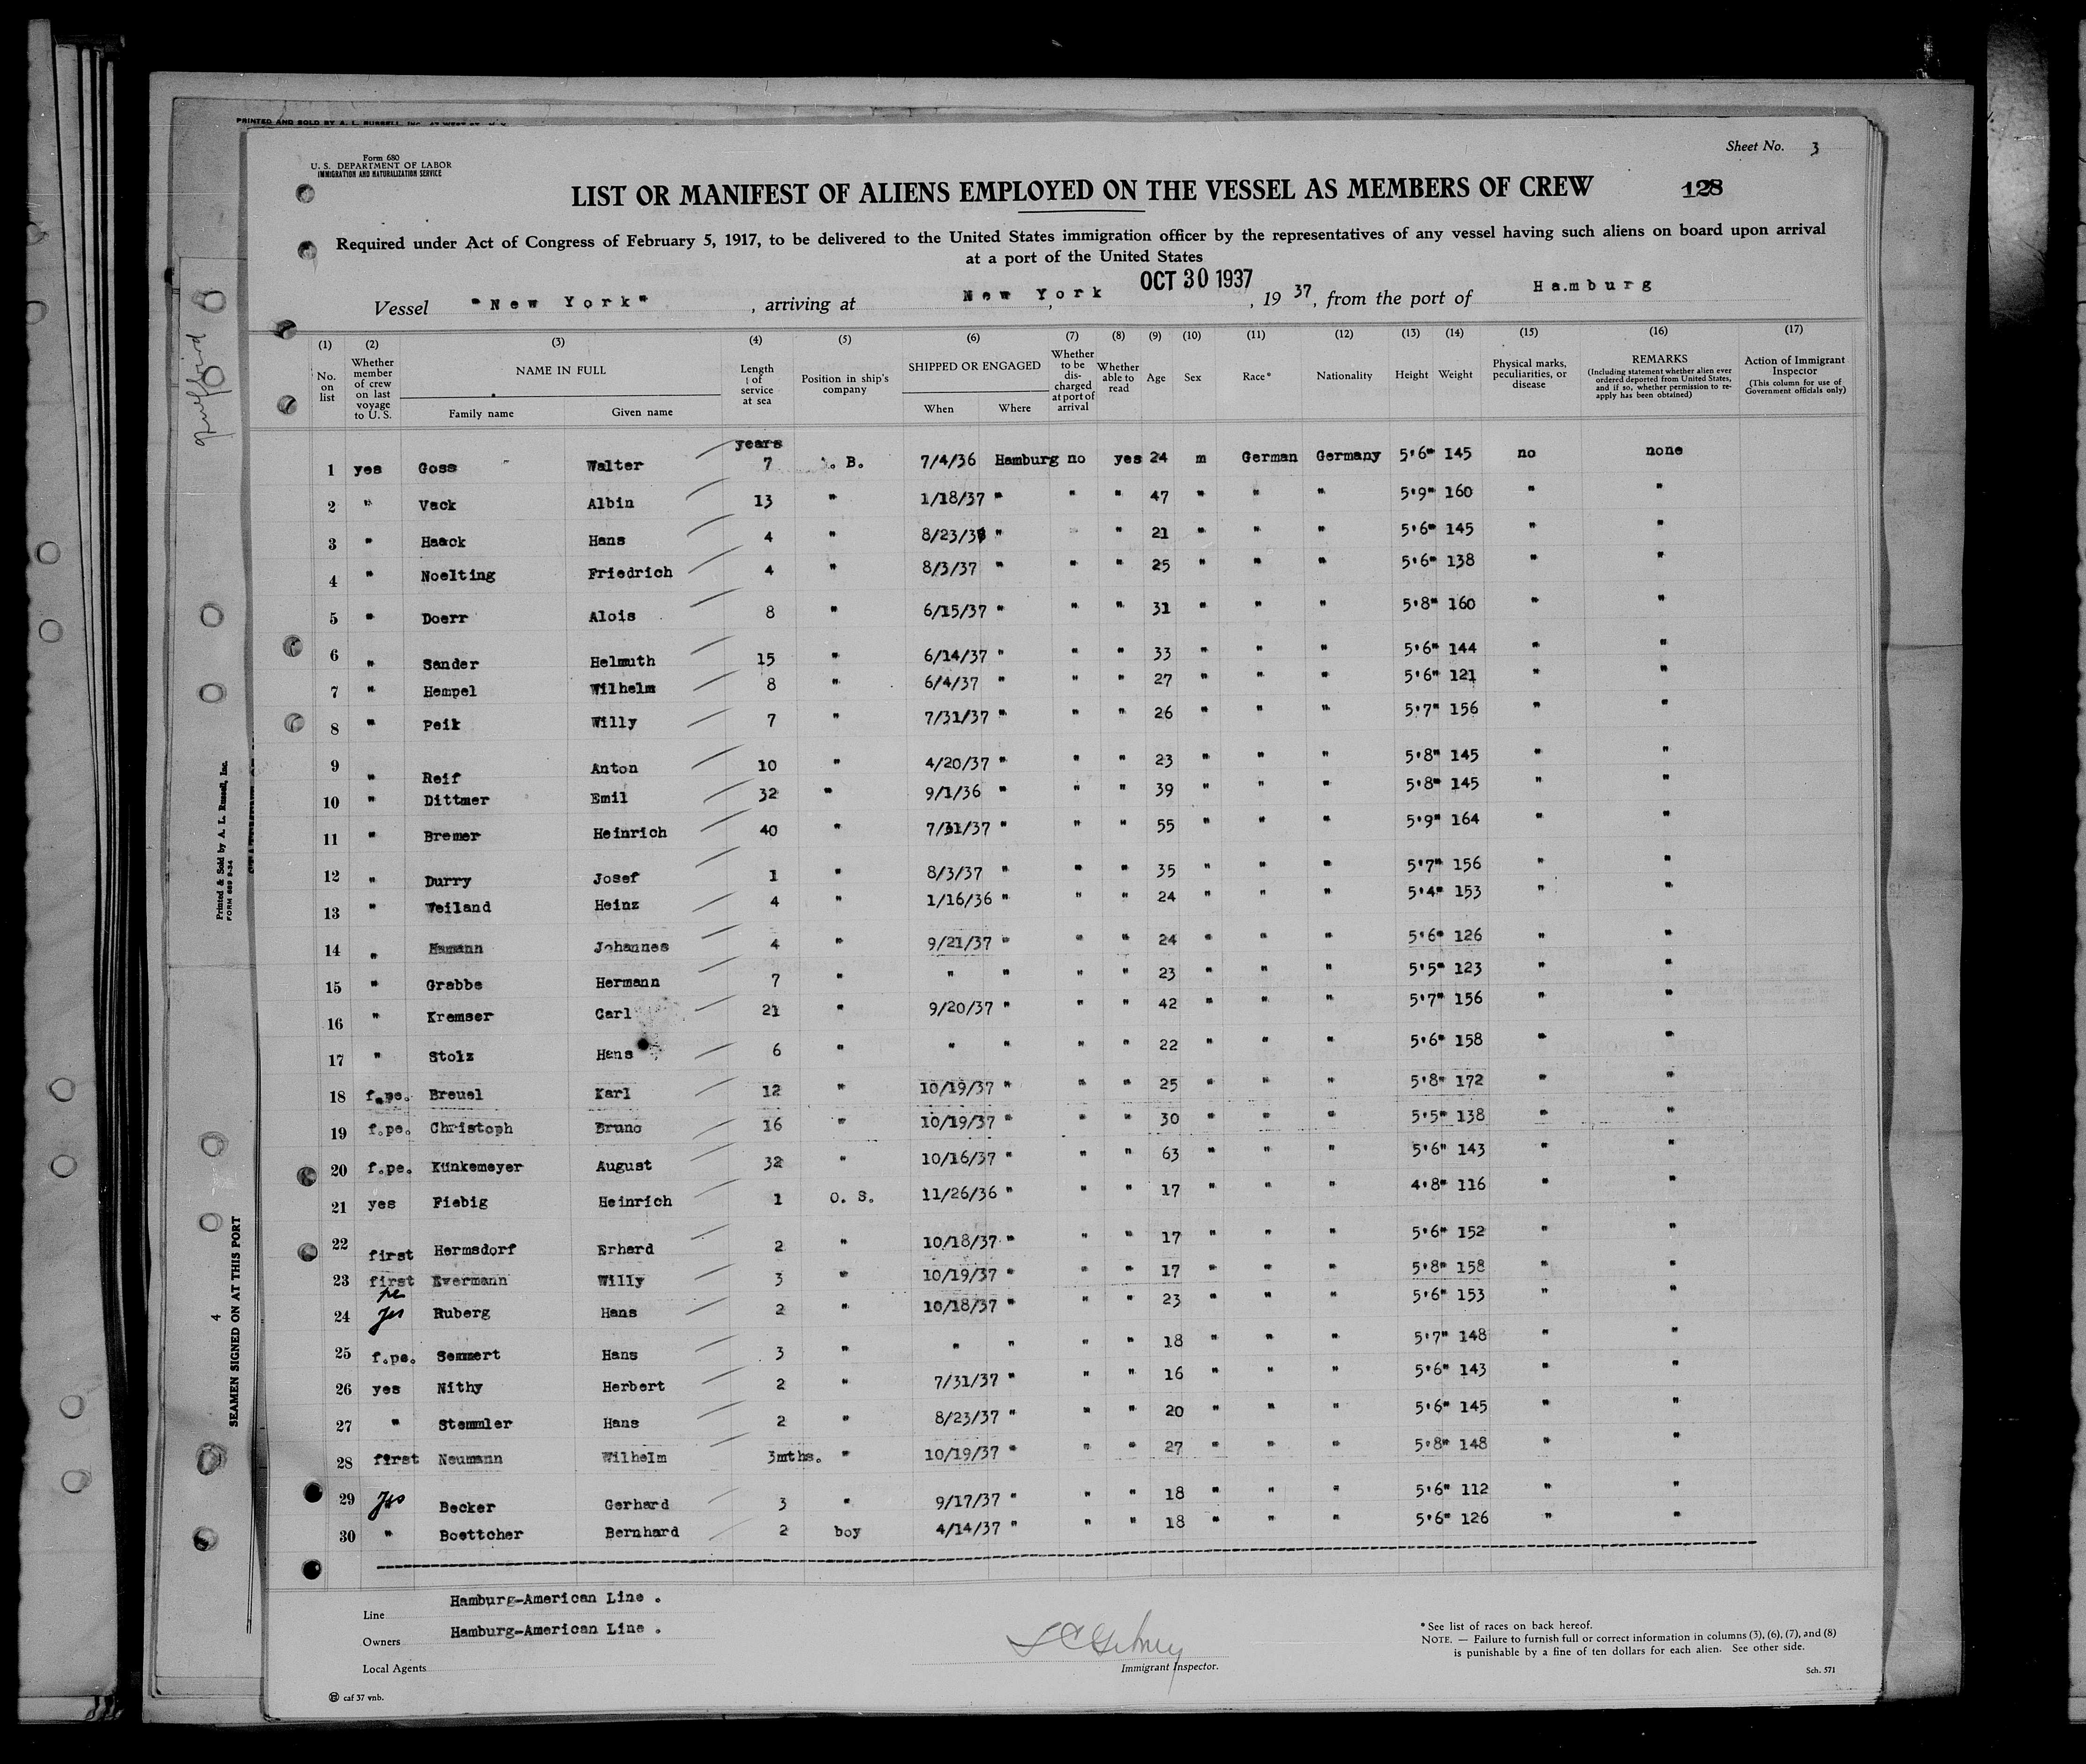 PRINTED AND SOLD BY A. L. RUSSELL, INC.
Form 680
U. S. DEPARTMENT OF LABOR
IMMIGRATION AND NATURALIZATION SERVICE
Sheet No. 3
LIST OR MANIFEST OF ALIENS EMPLOYED ON THE VESSEL AS MEMBERS OF CREW 128
Required under Act of Congress of February 5, 1917, to be delivered to the United States immigration officer by the representatives of any vessel having such aliens on board upon arrival
at a port of the United States
Vessel "New York", arriving at New York OCT 30 1937, 1937, from the port of Hamburg
(1) (2) (3) (4) (5) (6) (7) (8) (9) (10) (11) (12) (13) (14) (15) (16) (17)
No. on list
Whether member of crew on last voyage to U. S.
NAME IN FULL
Family name Given name
Length of service at sea
Position in ship's company
SHIPPED OR ENGAGED
When Where
Whether to be discharged at port of arrival
Whether able to read
Age
Sex
Race*
Nationality
Height
Weight
Physical marks, peculiarities, or disease
REMARKS
(Including statement whether alien ever ordered deported from United States, and if so, whether permission to reapply has been obtained)
Action of Immigrant Inspector
(This column for use of Government officials only)
years
1 yes Goss Walter 7 . B. 7/4/36 Hamburg no yes 24 m German Germany 5'6" 145 no none
2 " Vack Albin 13 " 1/18/37 " " " 47 " " " 5'9" 160 " "
3 " Haack Hans 4 " 8/23/3 " " " 21 " " " 5'6" 145 " "
4 " Noelting Friedrich 4 " 8/3/37 " " " 25 " " " 5'6" 138 " "
5 " Doerr Alois 8 " 6/15/37 " " " 31 " " " 5'8" 160 " "
6 " Sander Helmuth 15 " 6/14/37 " " " 33 " " " 5'6" 144 " "
7 " Hempel Wilhelm 8 " 6/4/37 " " " 27 " " " 5'6" 121 " "
8 " Peik Willy 7 " 7/31/37 " " " 26 " " " 5'7" 156 " "
9 " Reif Anton 10 " 4/20/37 " " " 23 " " " 5'8" 145 " "
10 " Dittmer Emil 32 " 9/1/36 " " " 39 " " " 5'8" 145 " "
11 " Bremer Heinrich 40 " 7/31/37 " " " 55 " " " 5'9" 164 " "
12 " Durry Josef 1 " 8/3/37 " " " 35 " " " 5'7" 156 " "
13 " Weiland Heinz 4 " 1/16/36 " " " 24 " " " 5'4" 153 " "
14 " Hamann Johannes 4 " 9/21/37 " " " 24 " " " 5'6" 126 " "
15 " Grabbe Hermann 7 " " " " " 23 " " " 5'5" 123 " "
16 " Kremser Carl 21 " 9/20/37 " " " 42 " " " 5'7" 156 " "
17 " Stolz Hans 6 " " " " " 22 " " " 5'6" 158 " "
18 f.pe. Breuel Karl 12 " 10/19/37 " " " 25 " " " 5'8" 172 " "
19 f.pe. Christoph Bruno 16 " 10/19/37 " " " 30 " " " 5'5" 138 " "
20 f.pe. Künkemeyer August 32 " 10/16/37 " " " 63 " " " 5'6" 143 " "
21 yes Fiebig Heinrich 1 O. S. 11/26/36 " " " 17 " " " 4'8" 116 " "
22 first Hermsdorf Erhard 2 " 10/18/37 " " " 17 " " " 5'6" 152 " "
23 first Evermann Willy 3 " 10/19/37 " " " 17 " " " 5'8" 158 " "
pe
24 yes Ruberg Hans 2 " 10/18/37 " " " 23 " " " 5'6" 153 " "
25 f.pe. Semmert Hans 3 " " " " " 18 " " " 5'7" 148 " "
26 yes Nithy Herbert 2 " 7/31/37 " " " 16 " " " 5'6" 143 " "
27 " Stemmler Hans 2 " 8/23/37 " " " 20 " " " 5'6" 145 " "
28 first Neumann Wilhelm 3mths. " 10/19/37 " " " 27 " " " 5'8" 148 " "
29 yes Becker Gerhard 3 " 9/17/37 " " " 18 " " " 5'6" 112 " "
30 " Boettcher Bernhard 2 boy 4/14/37 " " " 18 " " " 5'6" 126 " "
Line Hamburg-American Line .
Owners Hamburg-American Line .
Local Agents
Immigrant Inspector.
* See list of races on back hereof.
NOTE. — Failure to furnish full or correct information in columns (3), (6), (7), and (8)
is punishable by a fine of ten dollars for each alien. See other side.
Sch. 571
caf 37 vnb.
Printed & Sold by A. L. Russell, Inc.
FORM 689 2-34
4
SEAMEN SIGNED ON AT THIS PORT